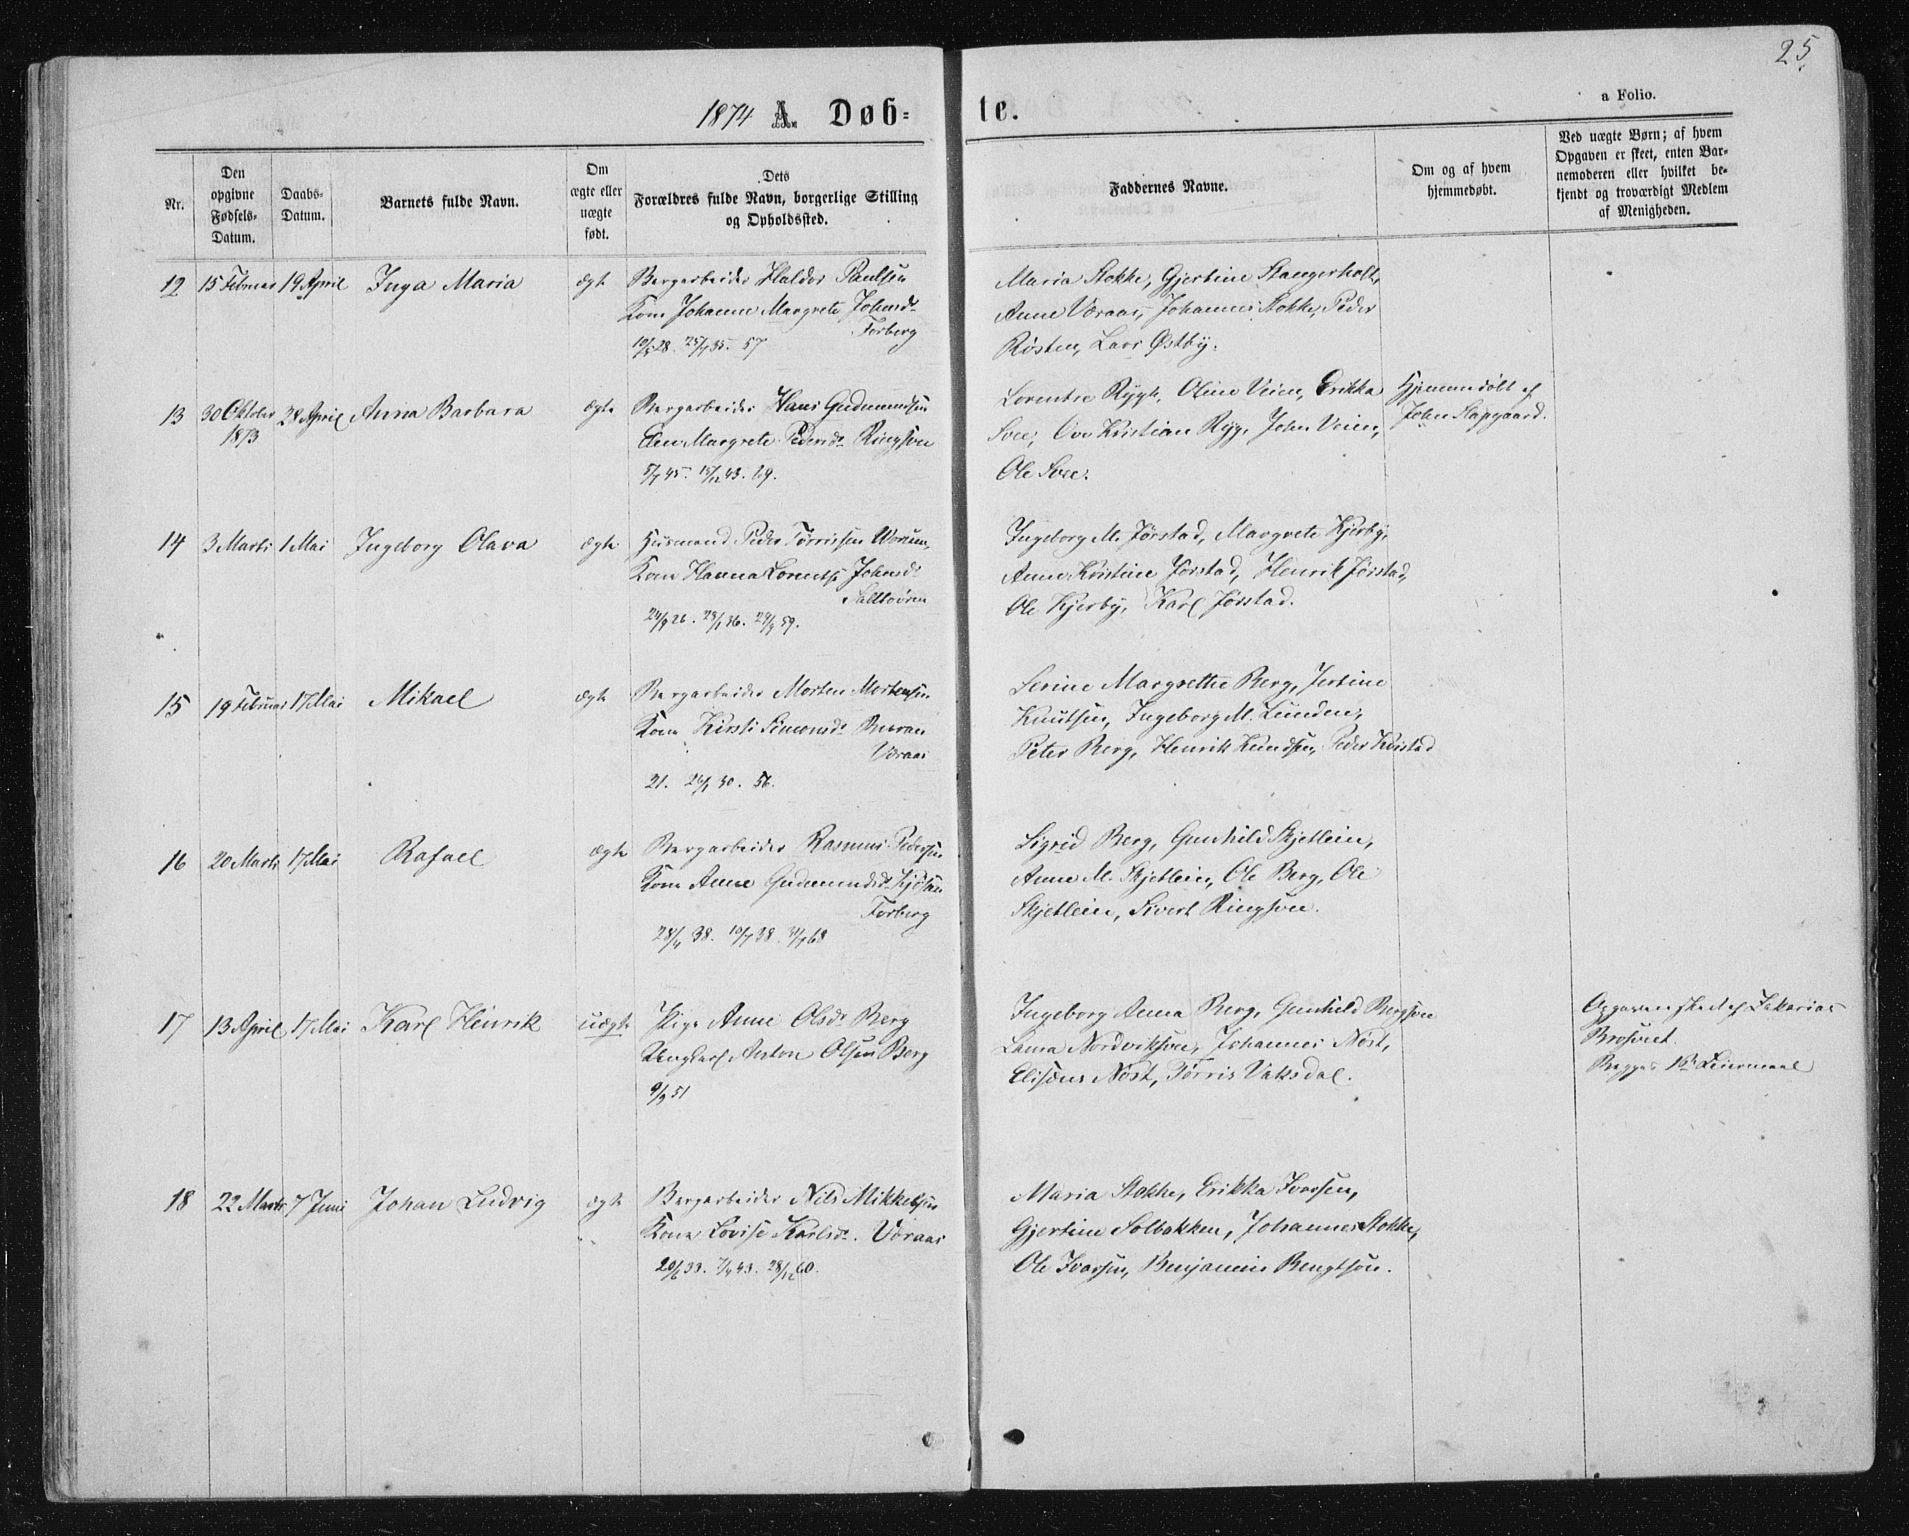 25.
1874 A. Døb=
te.
a Folio.
Nr.
Den opgivne Fødsels-Datum.
Daabs-Datum.
Barnets fulde Navn.
Om ægte eller uægte født.
Dets Forældres fulde Navn, borgerlige Stilling og Opholdssted.
Faddernes Navne.
Om og af hvem hjemmedøbt.
Ved uægte Børn; af hvem Opgaven er skeet, enten Barnemoderen eller hvilket bekjendt og troværdigt Medlem af Menigheden.
12 15 Februar 19 April Inga Maria ægte
Bergarbeider Haldor Paulsen
Kone Johanne Margrete Johnsd.
Forberg
10/5 28. 25/7 35. 57
Maria Stokke, Gjertine Stangerholt,
Anne Voraas, Johannes Stokke, Peder
Røsten, Lars Østby.
13 30 Oktober 1873 28 April Anna Barbara ægte
Bergarbeider Hans Gudmundsen
Elen Margrete Pedersd. Ringsven
5/7 45. 15/12 43. 69.
Lorentse Rygh, Oline Veien, Erikka
Svee, Ove Kristian Ryg, John Veien,
Ole Svee.
Hjemmedøbt af
John Slapgaard.
14 3 Marts 1 Mai Ingeborg Olava ægte
Husmand Peder Tørrissen
Kone Hanna Lorents. Johnsd.
24/9 26. 28/1 36. 24/9 59.
Ingeborg M. Jørstad, Margrete Kjerby,
Anne Kristine Jørstad, Henrik Jørstad,
Ole Kjerby, Karl Jørstad.
15 19 Februar 17 Mai Mikael ægte
Bergarbeider Morten Mortensen
Kone Kirsti Simonsd.
Voraas
21. 24/1 30. 56.
Serine Margrethe Berg, Justine
Knutsen, Ingeborg M. Lunden,
Peter Berg, Henrik Knudsen, Peder Kvistad
16 20 Marts 17 Mai Rafael ægte
Bergarbeider Rasmus Pedersen
Kone Anne Gudmundsd.
Forberg
28/4 38. 10/7 38. 68
Sigrid Berg, Gunhild Skjetlein,
Anne M. Skjetlein, Ole Berg, Ole
Skjetlein, Sivert Ringsven.
17 13 April 17 Mai Karl Henrik uægte
Pige Anne Olsd. Berg
Ungkarl Anton Olsen Berg
9/3 51
Ingeborg Anna Berg, Gunhild Bergsven
Laura Nordviksven, Johannes Nøst,
Elisæus Nøst, Tørris Vaksdal.
Opgaven skeet af Sakarias
Begges 1ste Leiermaal
18 22 Marts 7 Juni Johan Ludvig ægte
Bergarbeider Nils Mikkelsen
Kone Lovise Karlsd. Voraas
20/6 33. 7/4 43. 28/12 60.
Maria Stokke, Erikka Ivarsen,
Gjertine Solbakken, Johannes Stokke,
Ole Ivarsen, Benjamin Bengtsen.